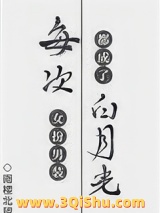 每次
女扮男装
都成了
白月光
◇南楼北望
www.3Qishu.com